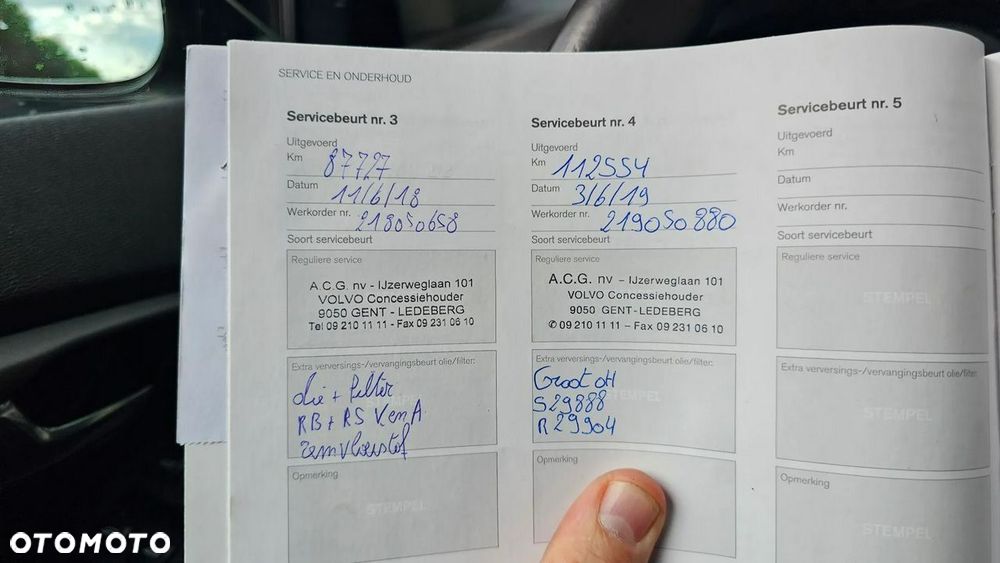 SERVICE EN ONDERHOUD
Servicebeurt nr. 3
Uitgevoerd
Km 87727
Datum 11/6/18
Werkorder nr. 218050658
Soort servicebeurt
Reguliere service
A.C.G. nv - IJzerweglaan 101
VOLVO Concessiehouder
9050 GENT - LEDEBERG
Tel 09 210 11 11 - Fax 09 231 06 10
Extra verversings-/vervangingsbeurt olie/filter:
olie + filter
RB + RS V en A
remvloeistof
Opmerking
STEMPEL
Servicebeurt nr. 4
Uitgevoerd
Km 112554
Datum 3/6/19
Werkorder nr. 219050880
Soort servicebeurt
Reguliere service
A.C.G. nv - IJzerweglaan 101
VOLVO Concessiehouder
9050 GENT - LEDEBERG
✆ 09 210 11 11 - Fax 09 231 06 10
Extra verversings-/vervangingsbeurt olie/filter:
STEMPEL
Groot OH
S29888
R29904
Opmerking
Servicebeurt nr. 5
Uitgevoerd
Km
Datum
Werkorder nr.
Soort servicebeurt
Reguliere service
STEMPEL
Extra verversings-/vervangingsbeurt olie/filter:
STEMPEL
Opmerking
STEMPEL
OTOMOTO